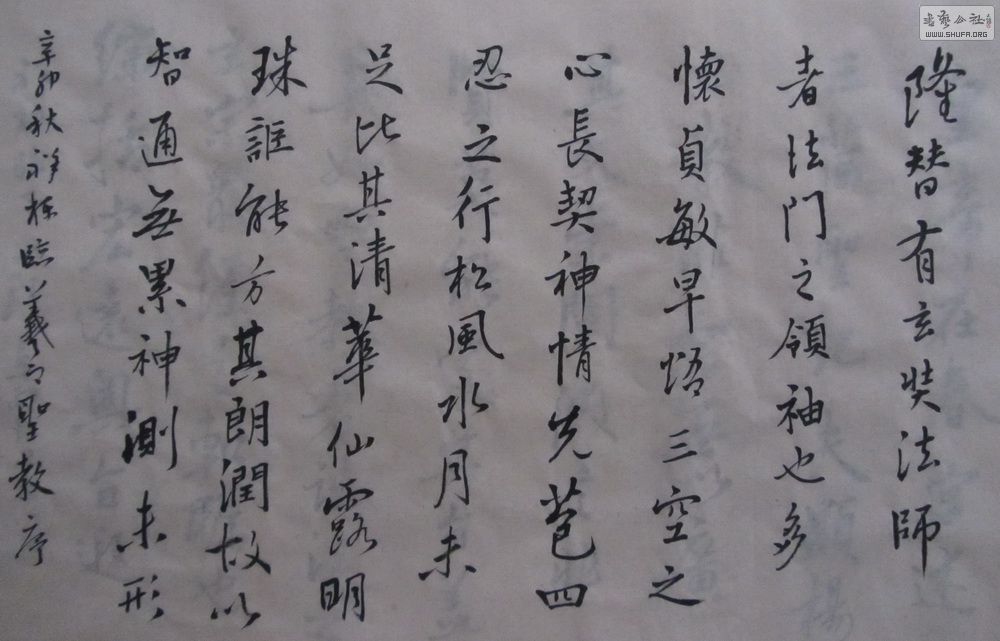 隆替有玄奘法師
者法門之領袖也多
懷貞敏早悟三空之
心長契神情先苞四
忍之行松風水月未
足比其清華仙露明
珠詎能方其朗潤故以
智通無累神測未形
辛卯秋祥栋臨羲之聖教序
書藝公社
WWW.SHUFA.ORG